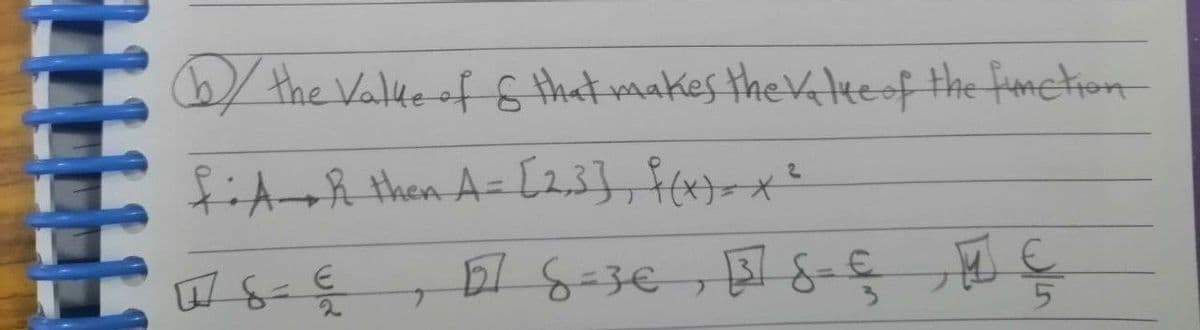 b/ the Value of δ that makes the Value of the function
f: A → R then A = [2,3], f(x) = x²
1 δ = ε/2 , 2 δ = 3ε , 3 δ = ε/3 , 4 ε/5